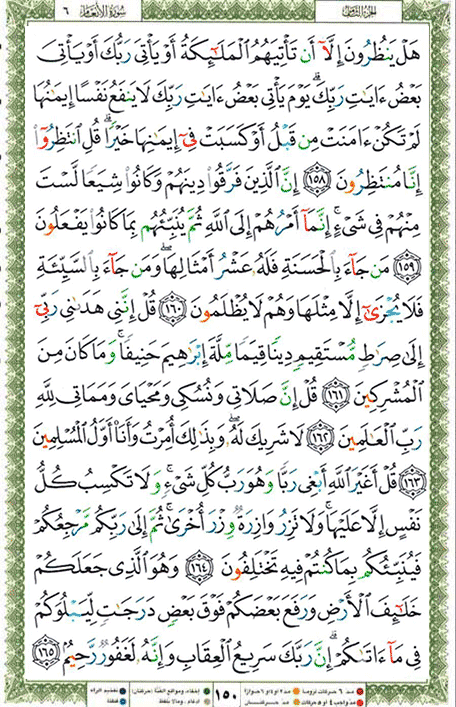 الجزء الثامن
سورة الأنعام ٦
هَلْ يَنظُرُونَ إِلَّآ أَن تَأْتِيَهُمُ ٱلْمَلَـٰٓئِكَةُ أَوْ يَأْتِىَ رَبُّكَ أَوْ يَأْتِىَ
بَعْضُ ءَايَـٰتِ رَبِّكَ ۗ يَوْمَ يَأْتِى بَعْضُ ءَايَـٰتِ رَبِّكَ لَا يَنفَعُ نَفْسًا إِيمَـٰنُهَا
لَمْ تَكُنْ ءَامَنَتْ مِن قَبْلُ أَوْ كَسَبَتْ فِىٓ إِيمَـٰنِهَا خَيْرًا ۗ قُلِ ٱنتَظِرُوٓا۟
إِنَّا مُنتَظِرُونَ ١٥٨ إِنَّ ٱلَّذِينَ فَرَّقُوا۟ دِينَهُمْ وَكَانُوا۟ شِيَعًا لَّسْتَ
مِنْهُمْ فِى شَىْءٍ ۚ إِنَّمَآ أَمْرُهُمْ إِلَى ٱللَّهِ ثُمَّ يُنَبِّئُهُم بِمَا كَانُوا۟ يَفْعَلُونَ
١٥٩ مَن جَآءَ بِٱلْحَسَنَةِ فَلَهُۥ عَشْرُ أَمْثَالِهَا ۖ وَمَن جَآءَ بِٱلسَّيِّئَةِ
فَلَا يُجْزَىٰٓ إِلَّا مِثْلَهَا وَهُمْ لَا يُظْلَمُونَ ١٦٠ قُلْ إِنَّنِى هَدَىٰنِى رَبِّىٓ
إِلَىٰ صِرَٰطٍ مُّسْتَقِيمٍ دِينًا قِيَمًا مِّلَّةَ إِبْرَٰهِيمَ حَنِيفًا ۚ وَمَا كَانَ مِنَ
ٱلْمُشْرِكِينَ ١٦١ قُلْ إِنَّ صَلَاتِى وَنُسُكِى وَمَحْيَاىَ وَمَمَاتِى لِلَّهِ
رَبِّ ٱلْعَـٰلَمِينَ ١٦٢ لَا شَرِيكَ لَهُۥ ۖ وَبِذَٰلِكَ أُمِرْتُ وَأَنَا۠ أَوَّلُ ٱلْمُسْلِمِينَ
١٦٣ قُلْ أَغَيْرَ ٱللَّهِ أَبْغِى رَبًّا وَهُوَ رَبُّ كُلِّ شَىْءٍ ۚ وَلَا تَكْسِبُ كُلُّ
نَفْسٍ إِلَّا عَلَيْهَا ۚ وَلَا تَزِرُ وَازِرَةٌ وِزْرَ أُخْرَىٰ ۚ ثُمَّ إِلَىٰ رَبِّكُم مَّرْجِعُكُمْ
فَيُنَبِّئُكُم بِمَا كُنتُمْ فِيهِ تَخْتَلِفُونَ ١٦٤ وَهُوَ ٱلَّذِى جَعَلَكُمْ
خَلَـٰٓئِفَ ٱلْأَرْضِ وَرَفَعَ بَعْضَكُمْ فَوْقَ بَعْضٍ دَرَجَـٰتٍ لِّيَبْلُوَكُمْ
فِى مَآ ءَاتَىٰكُمْ ۗ إِنَّ رَبَّكَ سَرِيعُ ٱلْعِقَابِ وَإِنَّهُۥ لَغَفُورٌ رَّحِيمٌۢ ١٦٥
١٥٠
مد ٦ حركات لزوماً
مد ٢ أو ٤ أو ٦ جوازاً
مد واجب ٤ أو ٥ حركات
مد حركتان
إخفاء، ومواقع الغنة (حركتان)
ادغام، ومالا يلفظ
تفخيم الراء
قلقلة